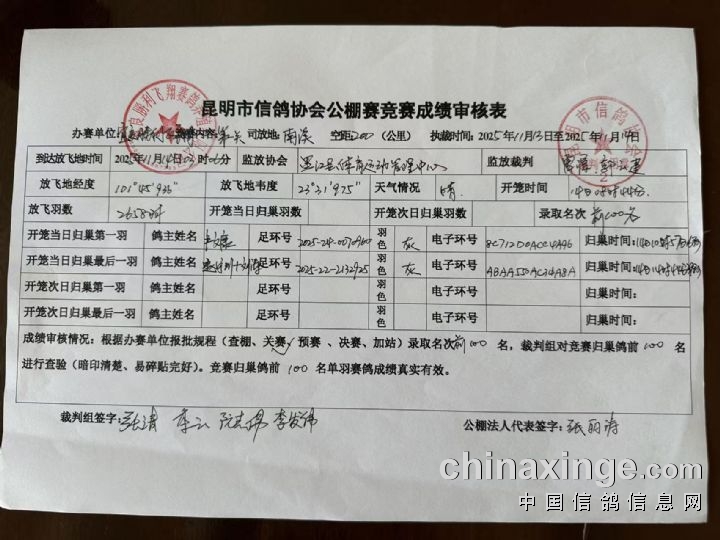 昆明市信鸽协会公棚赛竞赛成绩审核表
办赛单位: 竞赛内容: 第 关 司放地: 南溪 空距: 200 (公里) 执裁时间: 2025年11月13日至2025年11月14日
到达放飞地时间 2025年11月14日 时06分 监放协会 墨江县体育运动管理中心 监放裁判
放飞地经度 101°45'936" 放飞地韦度 23°31'975" 天气情况 晴 开笼时间 14日08时44分
放飞羽数 2658羽 开笼当日归巢羽数 开笼次日归巢羽数 录取名次 前100名
开笼当日归巢第一羽 鸽主姓名 足环号 羽色 灰 电子环号 8C712D0AC04A96 归巢时间:
开笼当日归巢最后一羽 鸽主姓名 足环号 2025-22-2132925 羽色 灰 电子环号 归巢时间:
开笼次日归巢第一羽 鸽主姓名 足环号 羽色 电子环号 归巢时间:
开笼次日归巢最后一羽 鸽主姓名 足环号 羽色 电子环号 归巢时间:
成绩审核情况: 根据办赛单位报批规程(查棚、关赛、预赛、决赛、加站)录取名次前100名,裁判组对竞赛归巢鸽前 100 名
进行查验(暗印清楚、易碎贴完好)。竞赛归巢鸽前 100 名单羽赛鸽成绩真实有效。
裁判组签字: 张靖 李云 阮志伟 李俊伟 公棚法人代表签字: 张丽涛
chinaxinge.com
中国信鸽信息网